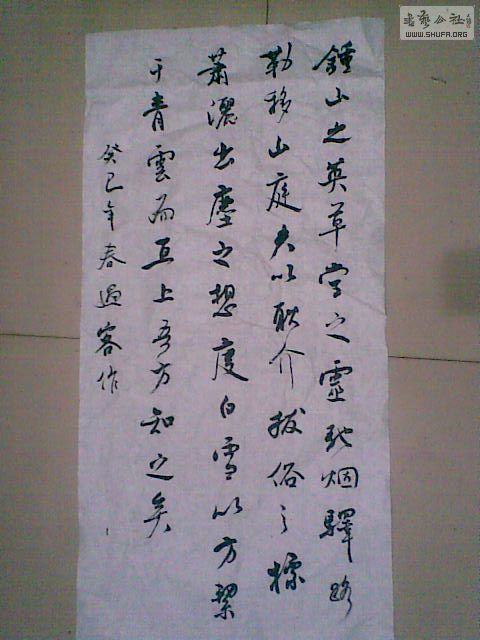 鍾山之英草堂之靈馳烟驛路
勒移山庭夫以耿介拔俗之標
萧灑出塵之想度白雪以方絜
干青雲而直上吾方知之矣
癸巳年春過客作
書藝公社
WWW.SHUFA.ORG